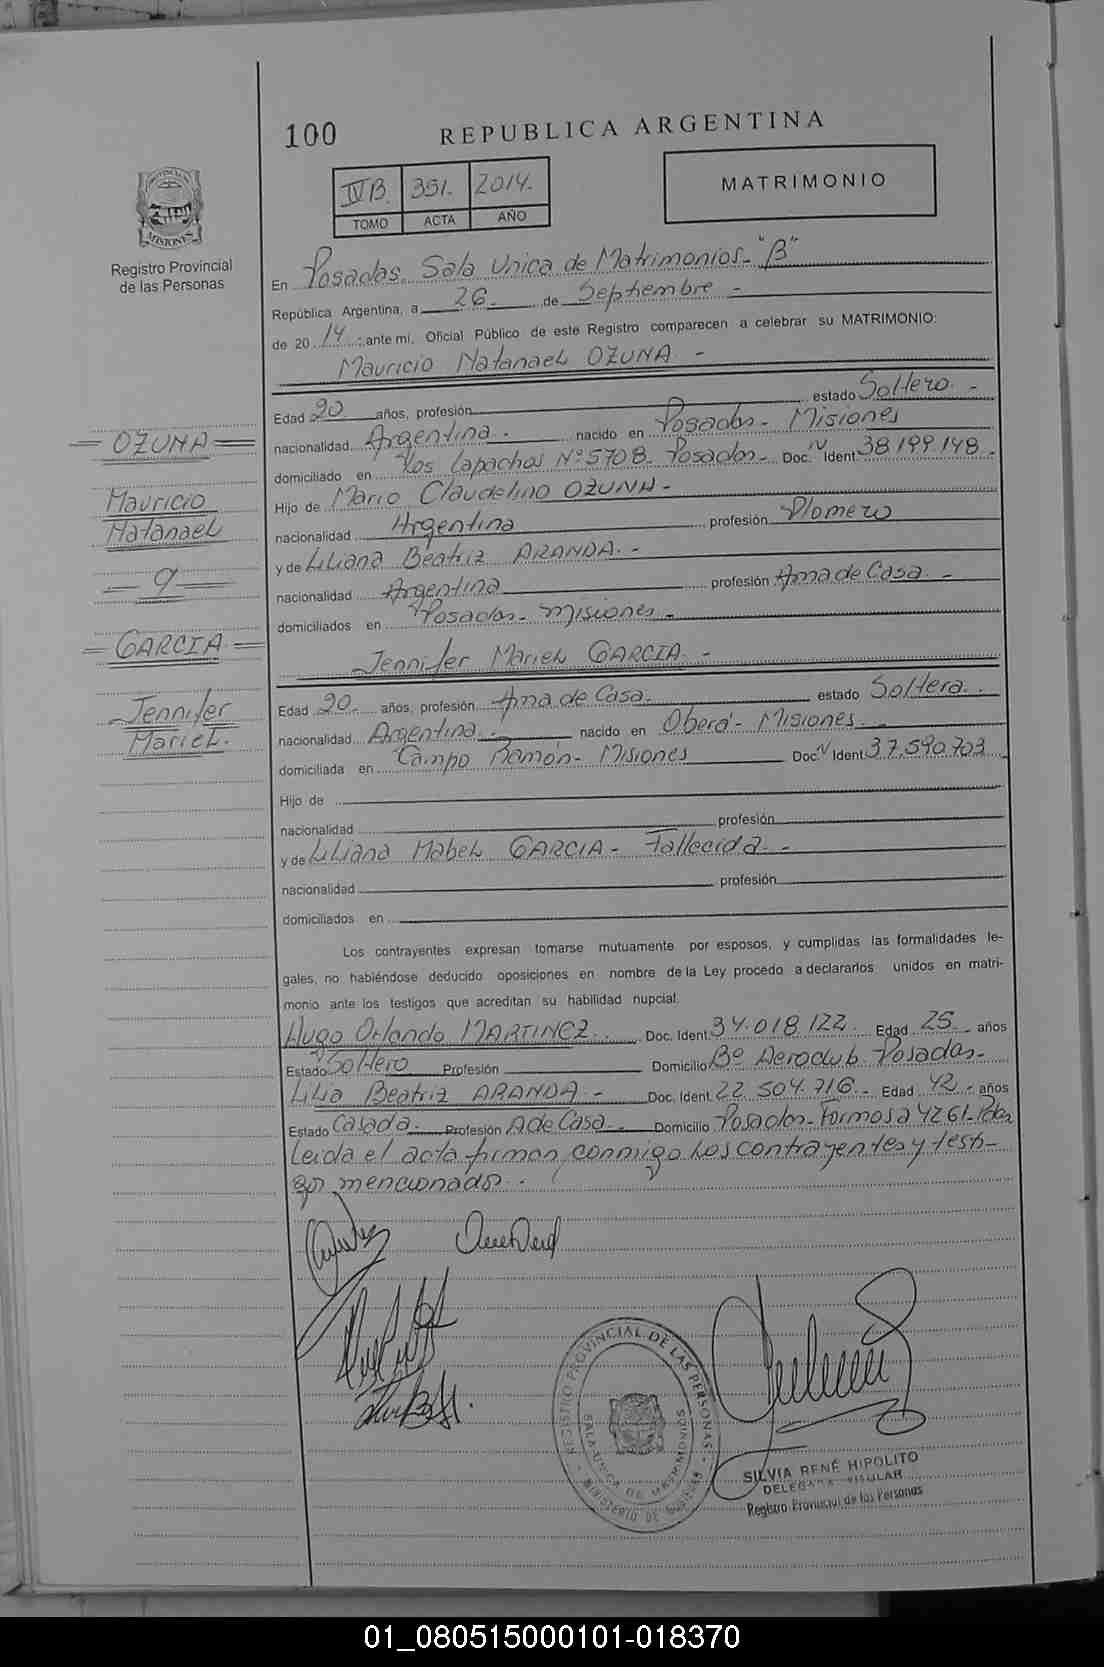 100 REPUBLICA ARGENTINA
IVB. 351. 2014.
TOMO ACTA AÑO
MATRIMONIO
PROVINCIA DE
MISIONES
Registro Provincial
de las Personas
En Posadas. Sala Unica de Matrimonios- "B"
República Argentina, a 26 de Septiembre -
de 2014 ; ante mí, Oficial Público de este Registro comparecen a celebrar su MATRIMONIO:
Mauricio Natanael OZUNA -
Edad 20 años, profesión estado Soltero -
nacionalidad Argentina. nacido en Posadas- Misiones
domiciliado en Los Lapachos Nº 5708. Posadas- Doc. N Ident 38.199.148-
Hijo de Mario Claudelino OZUNA-
nacionalidad Argentina profesión Plomero
y de Liliana Beatriz ARANDA. -
nacionalidad Argentina profesión Ama de Casa -
domiciliados en Posadas- Misiones -
Jennifer Mariel GARCIA. -
Edad 20. años, profesión Ama de Casa. estado Soltera.
nacionalidad Argentina. nacido en Oberá- Misiones. -
domiciliada en Campo Ramón- Misiones Doc. N Ident 37.590.703
Hijo de
nacionalidad profesión
y de Liliana Mabel GARCIA- Fallecida- -
nacionalidad profesión
domiciliados en
= OZUNA =
Mauricio
Natanael
= y =
= GARCIA =
Jennifer
Mariel.
Los contrayentes expresan tomarse mutuamente por esposos, y cumplidas las formalidades le-
gales, no habiéndose deducido oposiciones en nombre de la Ley procedo a declararlos unidos en matri-
monio ante los testigos que acreditan su habilidad nupcial.
Hugo Orlando MARTINEZ. Doc. Ident. 34.018.122. Edad 25 años
Estado Soltero Profesión Domicilio Bº Aeroclub. Posadas-
Lilia Beatriz ARANDA- Doc. Ident. 22.504.716- Edad 42- años
Estado Casada. Profesión A de Casa. Domicilio Posadas- Formosa 4261-Pdas
Leida el acta firman conmigo los contrayentes y testi-
gos mencionados.
REGISTRO PROVINCIAL DE LAS PERSONAS
SALA UNICA DE MATRIMONIOS
MINISTERIO DE GOBIERNO
SILVIA RENÉ HIPOLITO
DELEGADA TITULAR
Registro Provincial de las Personas
01_080515000101-018370